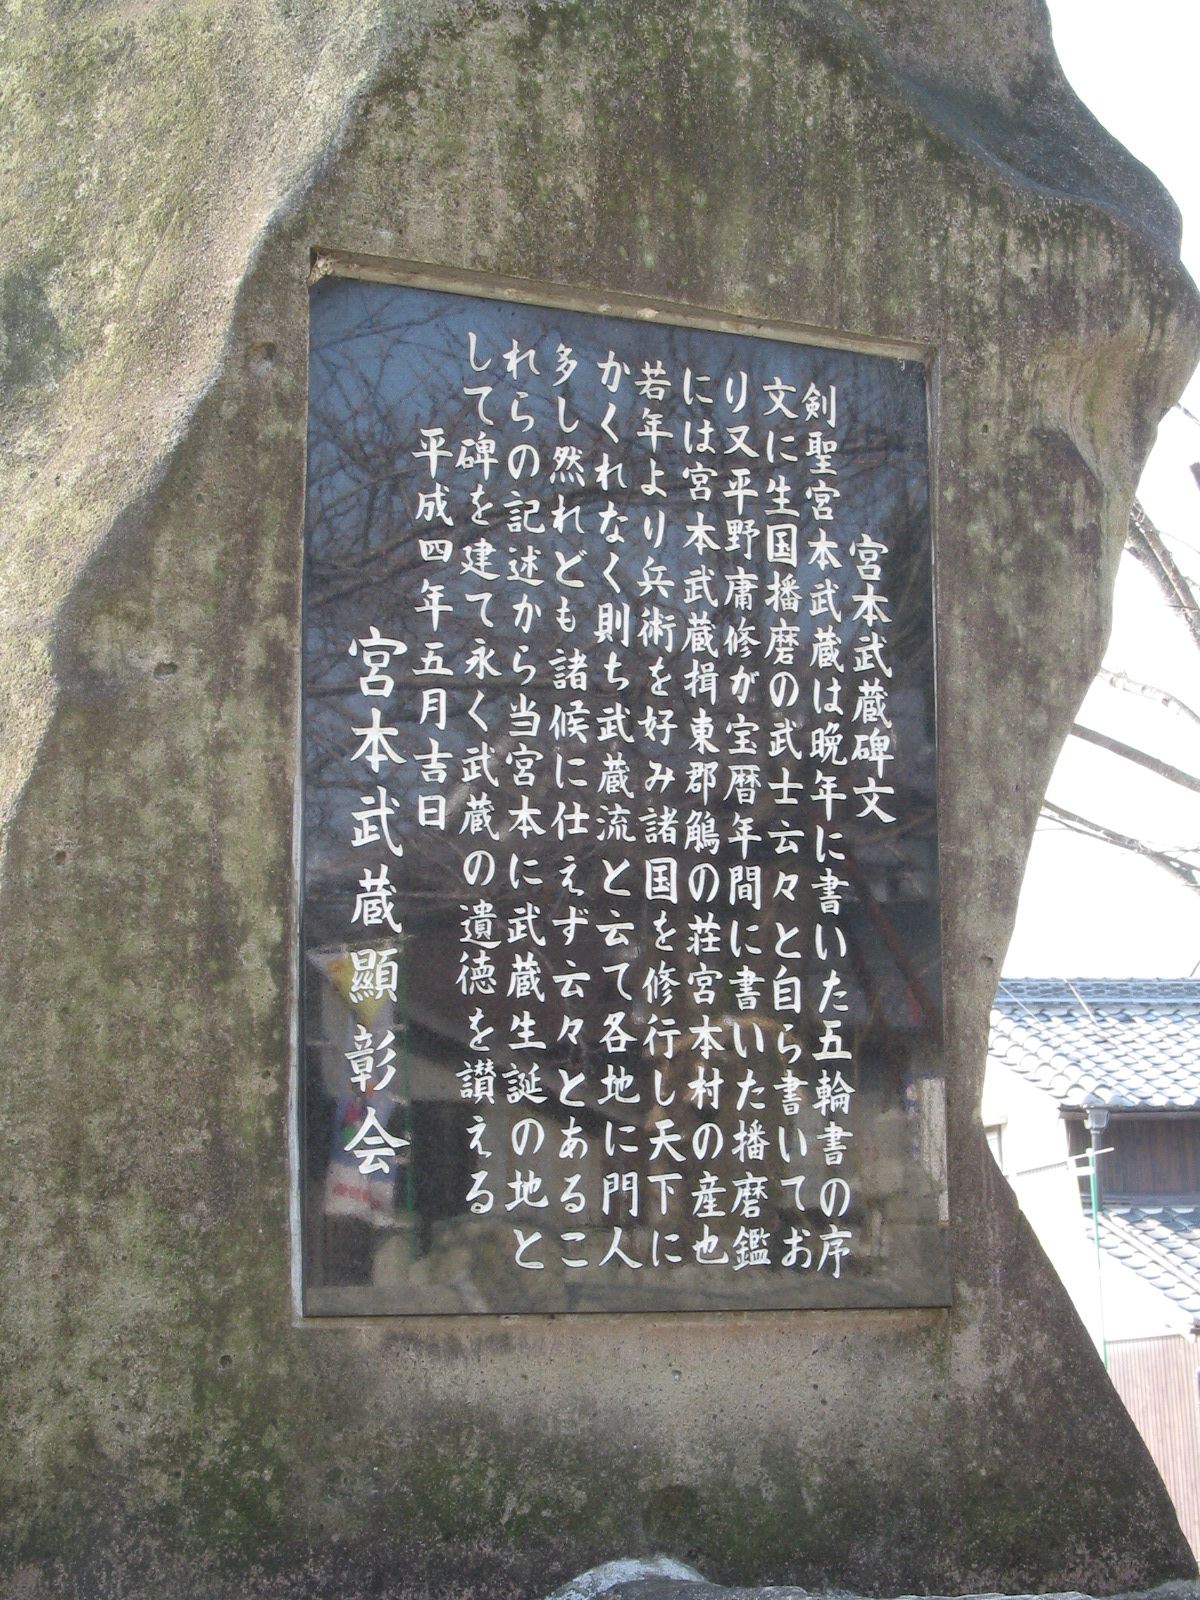 宮本武蔵碑文
剣聖宮本武蔵は晩年に書いた五輪書の序
文に生国播磨の武士云々と自ら書いてお
り又平野庸修が宝暦年間に書いた播磨鑑
には宮本武蔵揖東郡鵤の荘宮本村の産也
若年より兵術を好み諸国を修行し天下に
かくれなく則ち武蔵流と云て各地に門人
多し然れども諸候に仕えず云々とあるこ
れらの記述から当宮本に武蔵生誕の地と
して碑を建て永く武蔵の遺徳を讃える
平成四年五月吉日
宮本武蔵顯彰会